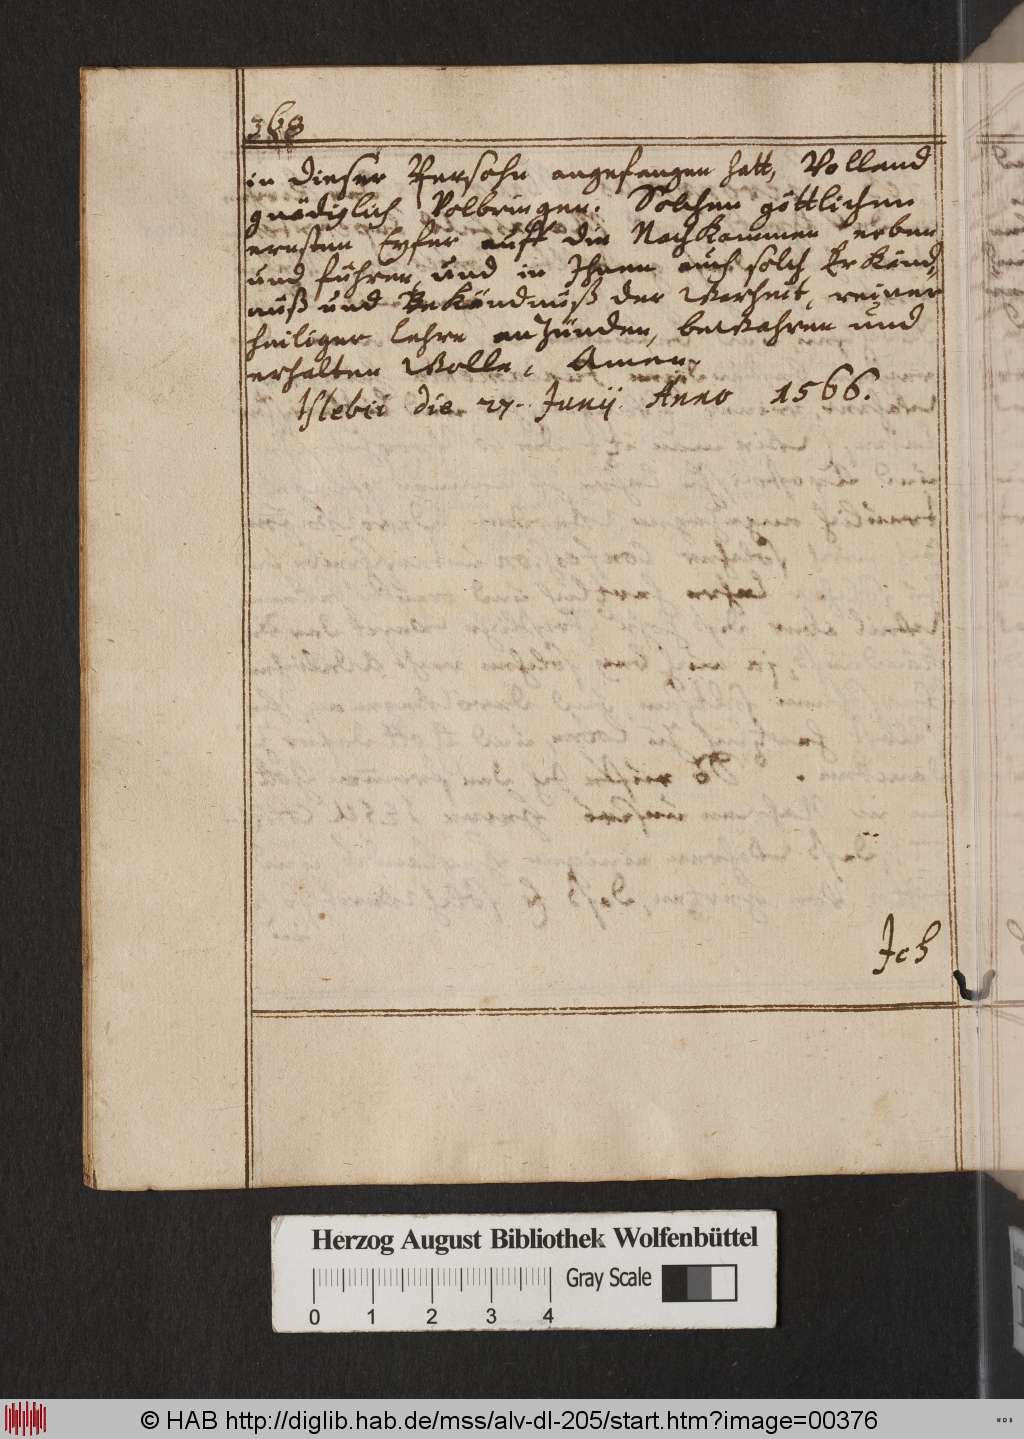 368
in dieser Persohn angefangen hatt, Vollend
gnädiglich Volbringen. Solchen göttlichen
ernsten Eyfer auff die Nachkommen erben
und führen, und in Ihnen auch solch Erkänd,
nüß und Bekändnüß der Warheit, reiner
heiliger Lehre anzünden, bewahren und
erhalten Wolle, Amen,
Islebii die 27. Junij Anno 1566.
Ich
Herzog August Bibliothek Wolfenbüttel
Gray Scale
0 1 2 3 4
© HAB http://diglib.hab.de/mss/alv-dl-205/start.htm?image=00376